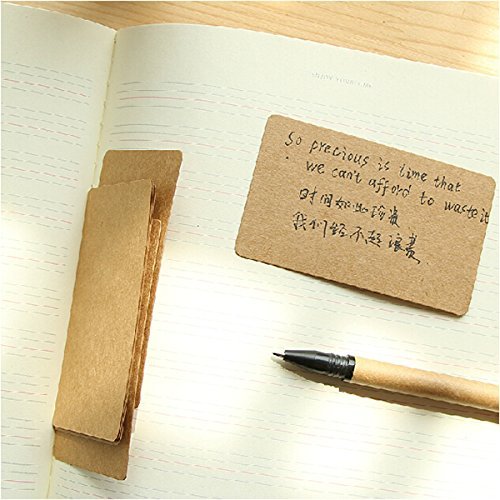 So precious is time that
we can't afford to waste it
时间如此珍贵
我们经不起浪费.